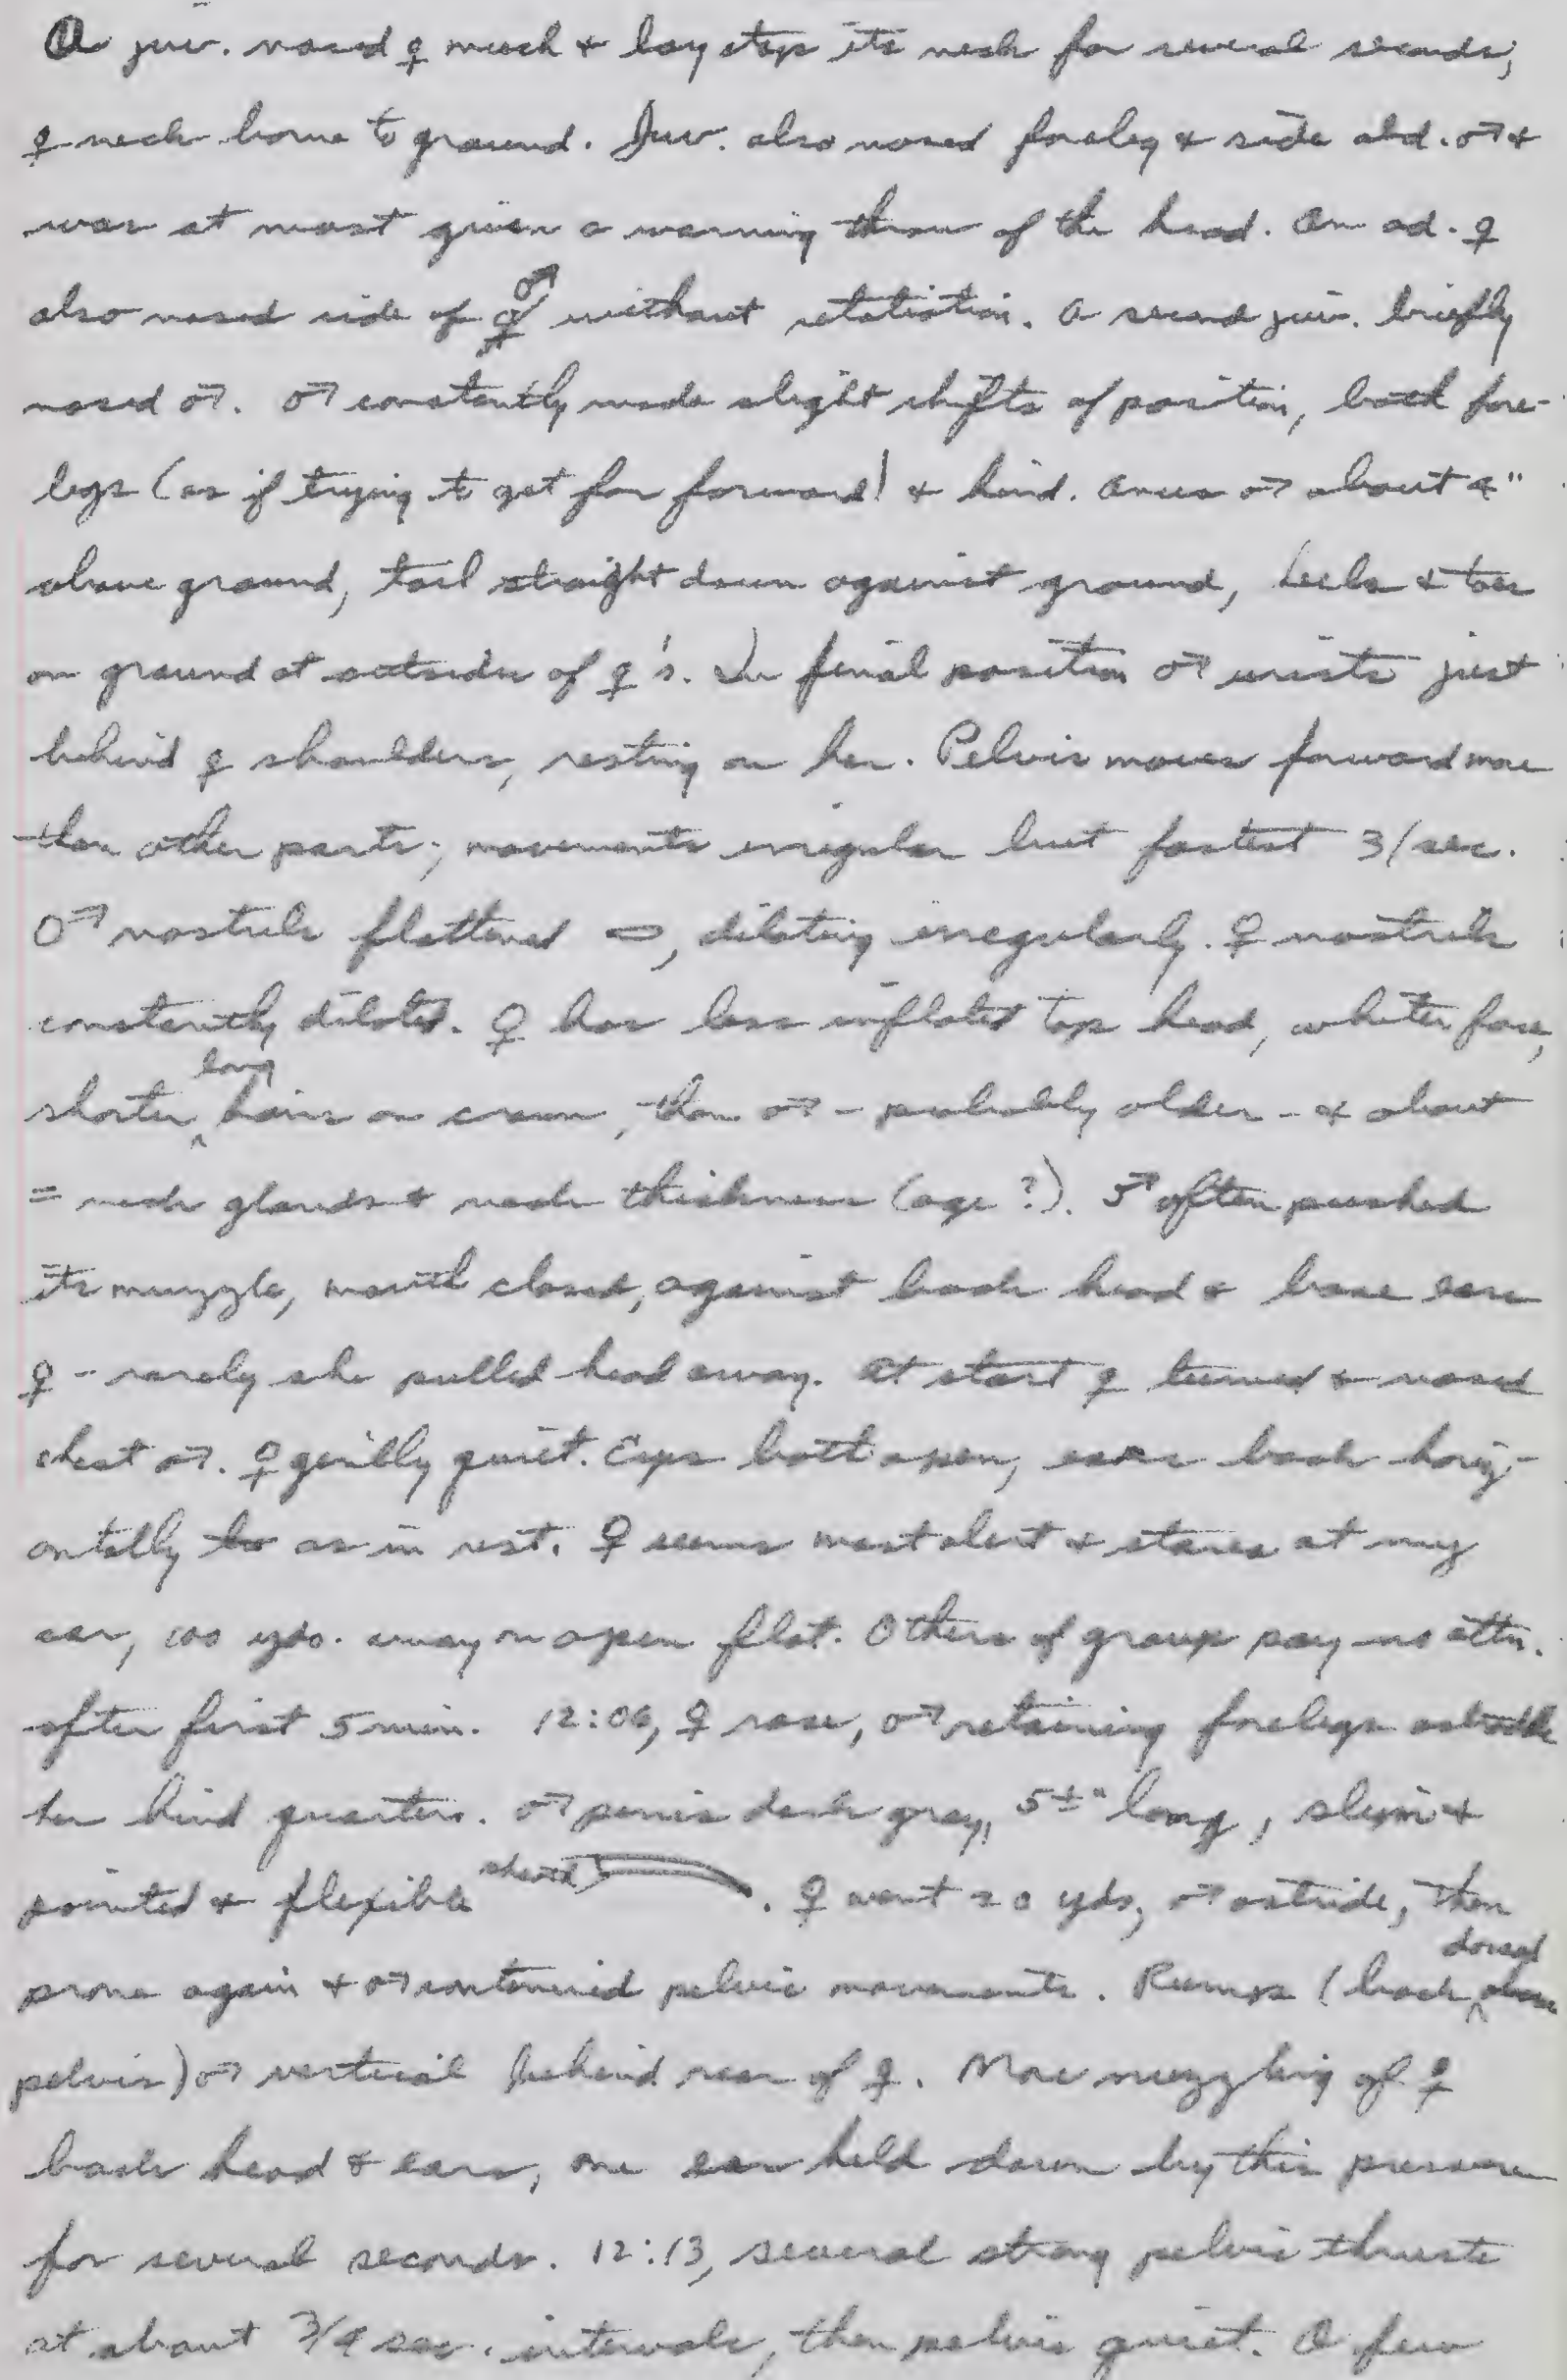 A juv. nosed ♀ much & lay atop its neck for several seconds;
♀ neck borne to ground. Juv. also nosed foreleg & side abd. ♂ &
was at most given a warning throw of the head. An ad. ♀
also nosed side of ♂ without retaliation. A second juv. briefly
nosed ♂. ♂ constantly made slight shifts of position, both fore-
legs (as if trying to get far forward) & hind. Anus ♂ about 4"
above ground, tail straight down against ground, heels & toes
on ground at outsides of ♀'s. In final position ♂ wrists just
behind ♀ shoulders, resting on her. Pelvis moves forward more
than other parts; movements irregular but fastest 3/sec.
♂ nostrils flattened, dilating irregularly. ♀ nostrils
constantly dilated. ♀ has less inflated top head, whiter face,
shorter long hairs on crown, than ♂ - probably older - & about
= neck glands & neck thickness (age?). ♂ often pushed
its muzzle, mouth closed, against back head & base ears
♀ - rarely she pulled head away. At start ♀ turned & nosed
chest ♂. ♀ genlly quiet. Eyes both open, ears back horiz-
ontally to as in rest. ♀ seems most alert & stares at my
car, 100 yds. away on open flat. Others of group pay no attn.
after first 5 min. 12:06, ♀ rose, ♂ retaining forelegs astraddle
her hind quarters. ♂ penis dark gray, 5±" long, slim &
pointed & flexible sheath . ♀ went 20 yds, ♂ astride, then
prone again & ♂ continued pelvic movements. Rump (back dorsal above
pelvis) ♂ vertical behind rear of ♀. More nuzzling of ♀
back head & ears, one ear held down by this pressure
for several seconds. 12:13, several strong pelvic thrusts
at about 3/4 sec. intervals, then pelvis quiet. A few